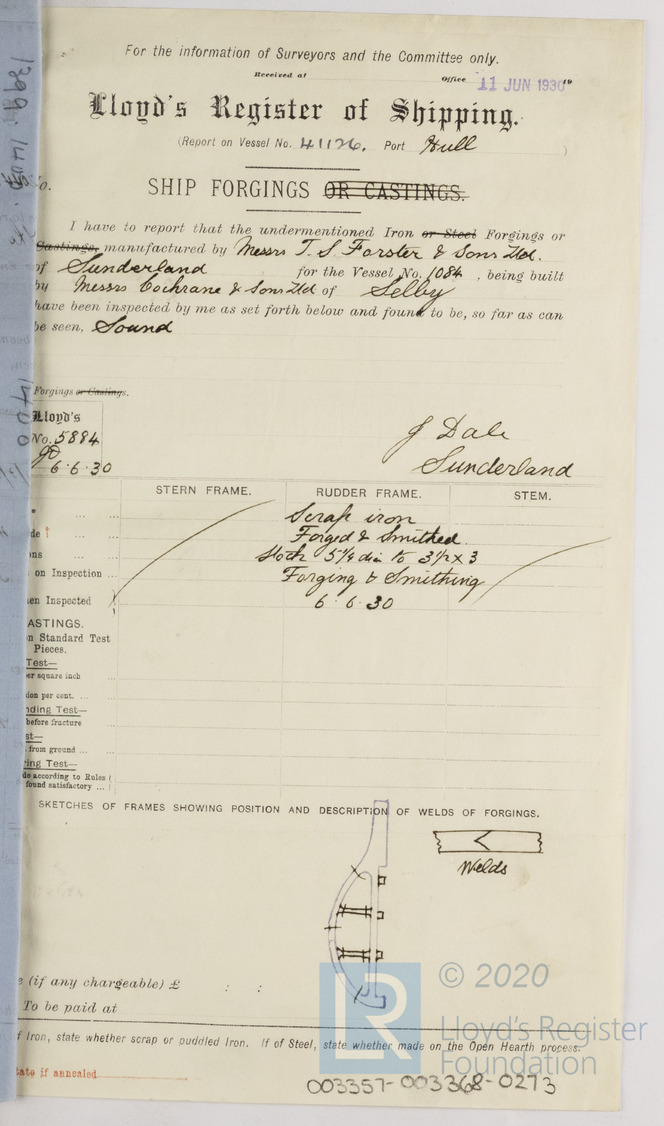 For the information of Surveyors and the Committee only.
Received at Office 11 JUN 1930 19
Lloyd's Register of Shipping.
(Report on Vessel No. 41126. Port Hull )
No.
SHIP FORGINGS OR CASTINGS.
I have to report that the undermentioned Iron or Steel Forgings or
Castings, manufactured by Messrs T. S. Forster & Sons Ltd.
of Sunderland for the Vessel No. 1084, being built
by Messrs Cochrane & Sons Ltd of Selby
have been inspected by me as set forth below and found to be, so far as can
be seen, Sound
Forgings or Castings.
Lloyd's
No. 5894
JD
6.6.30
J Dale
Sunderland
STERN FRAME. RUDDER FRAME. STEM.
Scrap iron
de † Forged & Smithed.
ons Stock 5 1/4 dia to 3 1/2 x 3
on Inspection ... Forging & Smithing
en Inspected 6.6.30
ASTINGS.
n Standard Test
Pieces.
Test—
er square inch
ion per cent. ...
nding Test—
before fracture
st—
from ground ...
ring Test—
de according to Rules
found satisfactory ...
SKETCHES OF FRAMES SHOWING POSITION AND DESCRIPTION OF WELDS OF FORGINGS.
Welds
e (if any chargeable) £ : :
To be paid at
f Iron, state whether scrap or puddled Iron. If of Steel, state whether made on the Open Hearth process.
tate if annealed
LR
© 2020
Lloyd's Register
Foundation
003357-003368-0273
1400